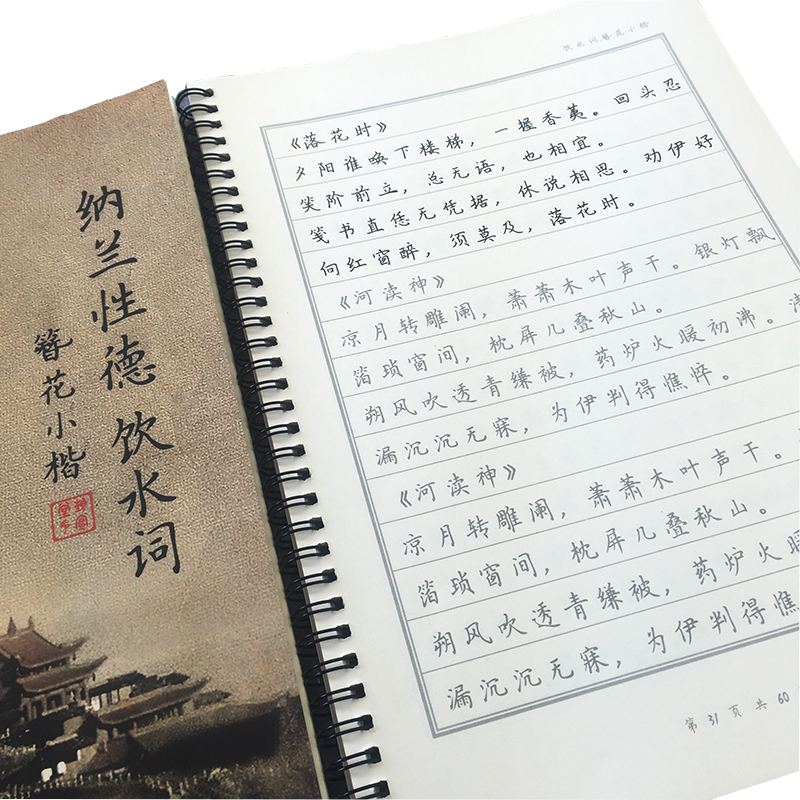 纳兰性德 饮水词
簪花小楷
饮水词簪花小楷
《落花时》
夕阳谁唤下楼梯，一握香荑。回头忍
笑阶前立，总无语，也相宜。
笺书直恁无凭据，休说相思。劝伊好
向红窗醉，须莫及，落花时。
《河渎神》
凉月转雕阑，萧萧木叶声干。银灯飘
箔琐窗间，枕屏几叠秋山。
朔风吹透青缣被，药炉火暖初沸。
漏沉沉无寐，为伊判得憔悴。
《河渎神》
凉月转雕阑，萧萧木叶声干。
箔琐窗间，枕屏几叠秋山。
朔风吹透青缣被，药炉火暖
漏沉沉无寐，为伊判得憔
第 31 页 共 60